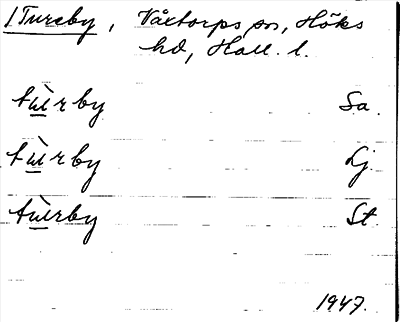 1 Tureby, Våxtorps sn, Höks
hd, Hall. l.
tùrby Sa.
tùrby Lj.
tùrby St
1947.